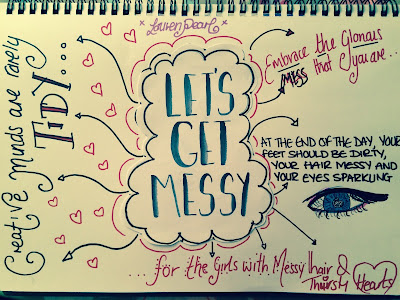 *Lauren Pearl*
Creative Minds are rarely
TIDY...
LET'S
GET
MESSY
Embrace the Glorious
MESS that you are...
AT THE END OF THE DAY, YOUR
FEET SHOULD BE DIRTY,
YOUR HAIR MESSY AND
YOUR EYES SPARKLING
...for the Girls with Messy Hair &
Thirsty Hearts